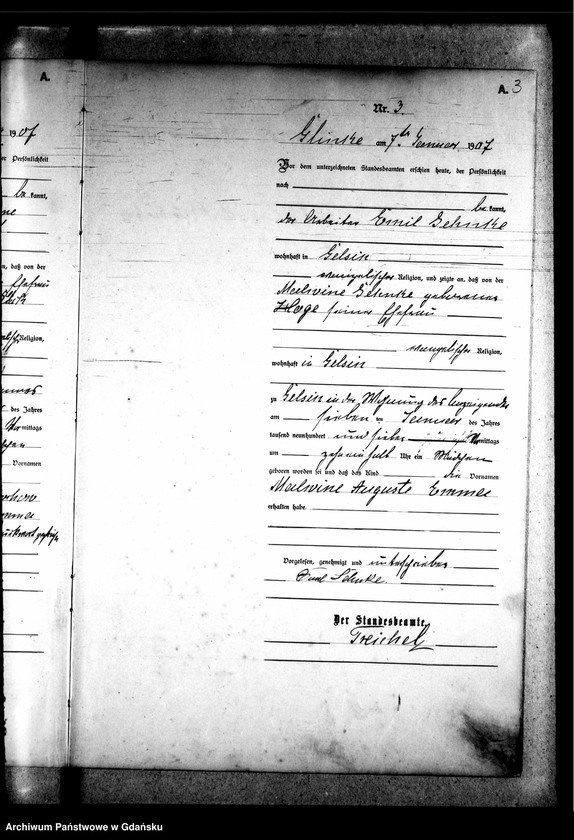 A.
1907
er Persönlichkeit
be kannt,
e, daß von der
Ehefrau
Religion,
des Jahres
mittags
Vornamen
A. 3
Nr. 3.
Glinke am 7ten Januar 1907
Vor dem unterzeichneten Standesbeamten erschien heute, der Persönlichkeit
nach
be kannt,
der Arbeiter Emil Gehnke
wohnhaft in Gelsin
evangelischer Religion, und zeigte an, daß von der
Malwine Gehnke geborenen
Hoge seiner Ehefrau
evangelischer Religion,
wohnhaft in Gelsin
zu Gelsin in der Wohnung des Anzeigenden
am sieben ten Januar des Jahres
tausend neunhundert und sieben Vormittags
um Uhr ein Mädchen
geboren worden sei und daß das Kind die Vornamen
Malwine Auguste Emma
erhalten habe.
Vorgelesen, genehmigt und unterschrieben
Der Standesbeamte.
Treichel
Archiwum Państwowe w Gdańsku